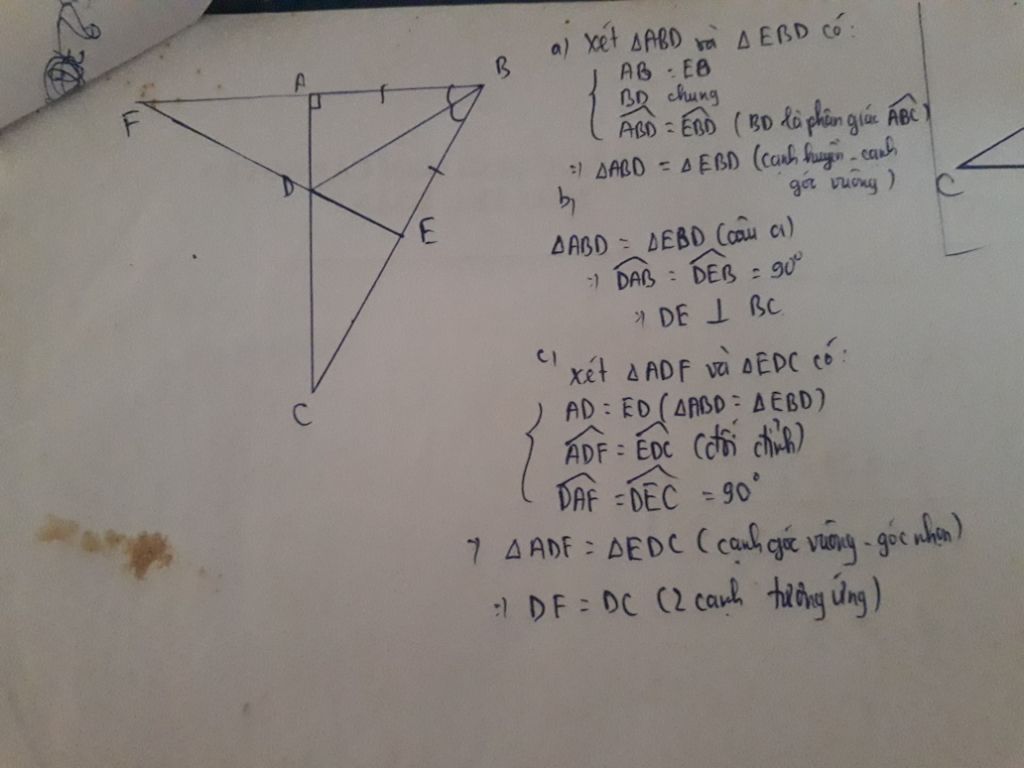 A
B
F
D
E
C
a) Xét ΔABD và ΔEBD có:
AB = EB
BD chung
ABD = EBD (BD là phân giác ABC)
=> ΔABD = ΔEBD (cạnh huyền - cạnh
góc vuông)
b,
ΔABD = ΔEBD (câu a)
=> DAB = DEB = 90°
=> DE ⊥ BC
c, Xét ΔADF và ΔEDC có:
AD = ED (ΔABD = ΔEBD)
ADF = EDC (đối đỉnh)
DAF = DEC = 90°
=> ΔADF = ΔEDC (cạnh góc vuông - góc nhọn)
=> DF = DC (2 cạnh tương ứng)
C